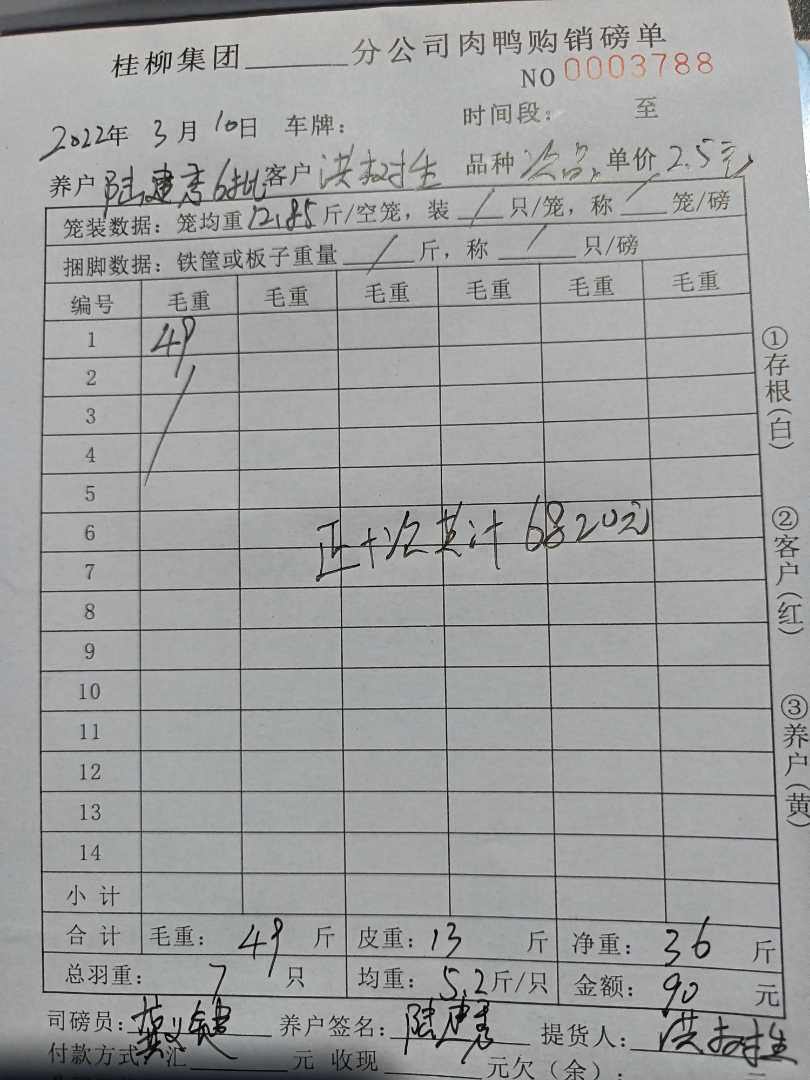 桂柳集团______分公司肉鸭购销磅单
NO 0003788
2022年 3月 10日 车牌: 时间段: 至
养户 陆建彥6批 客户 洪树生 品种 次品 单价 2.5元
笼装数据: 笼均重 12.85 斤/空笼, 装 / 只/笼, 称 / 笼/磅
捆脚数据: 铁筐或板子重量 / 斤, 称 / 只/磅
编号 毛重 毛重 毛重 毛重 毛重 毛重
1 49
2
3
4
5
6
正+次共计 6820元
7
8
9
10
11
12
13
14
小 计
合 计 毛重: 49 斤 皮重: 13 斤 净重: 36 斤
总羽重: 7 只 均重: 5.2 斤/只 金额: 90 元
司磅员: 养户签名: 陆建彥 提货人: 洪树生
付款方式: 汇______元 收现______元欠(余):
①存根(白)
②客户(红)
③养户(黄)